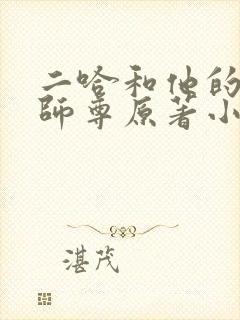 二哈和他的
師尊原著小
湛茂